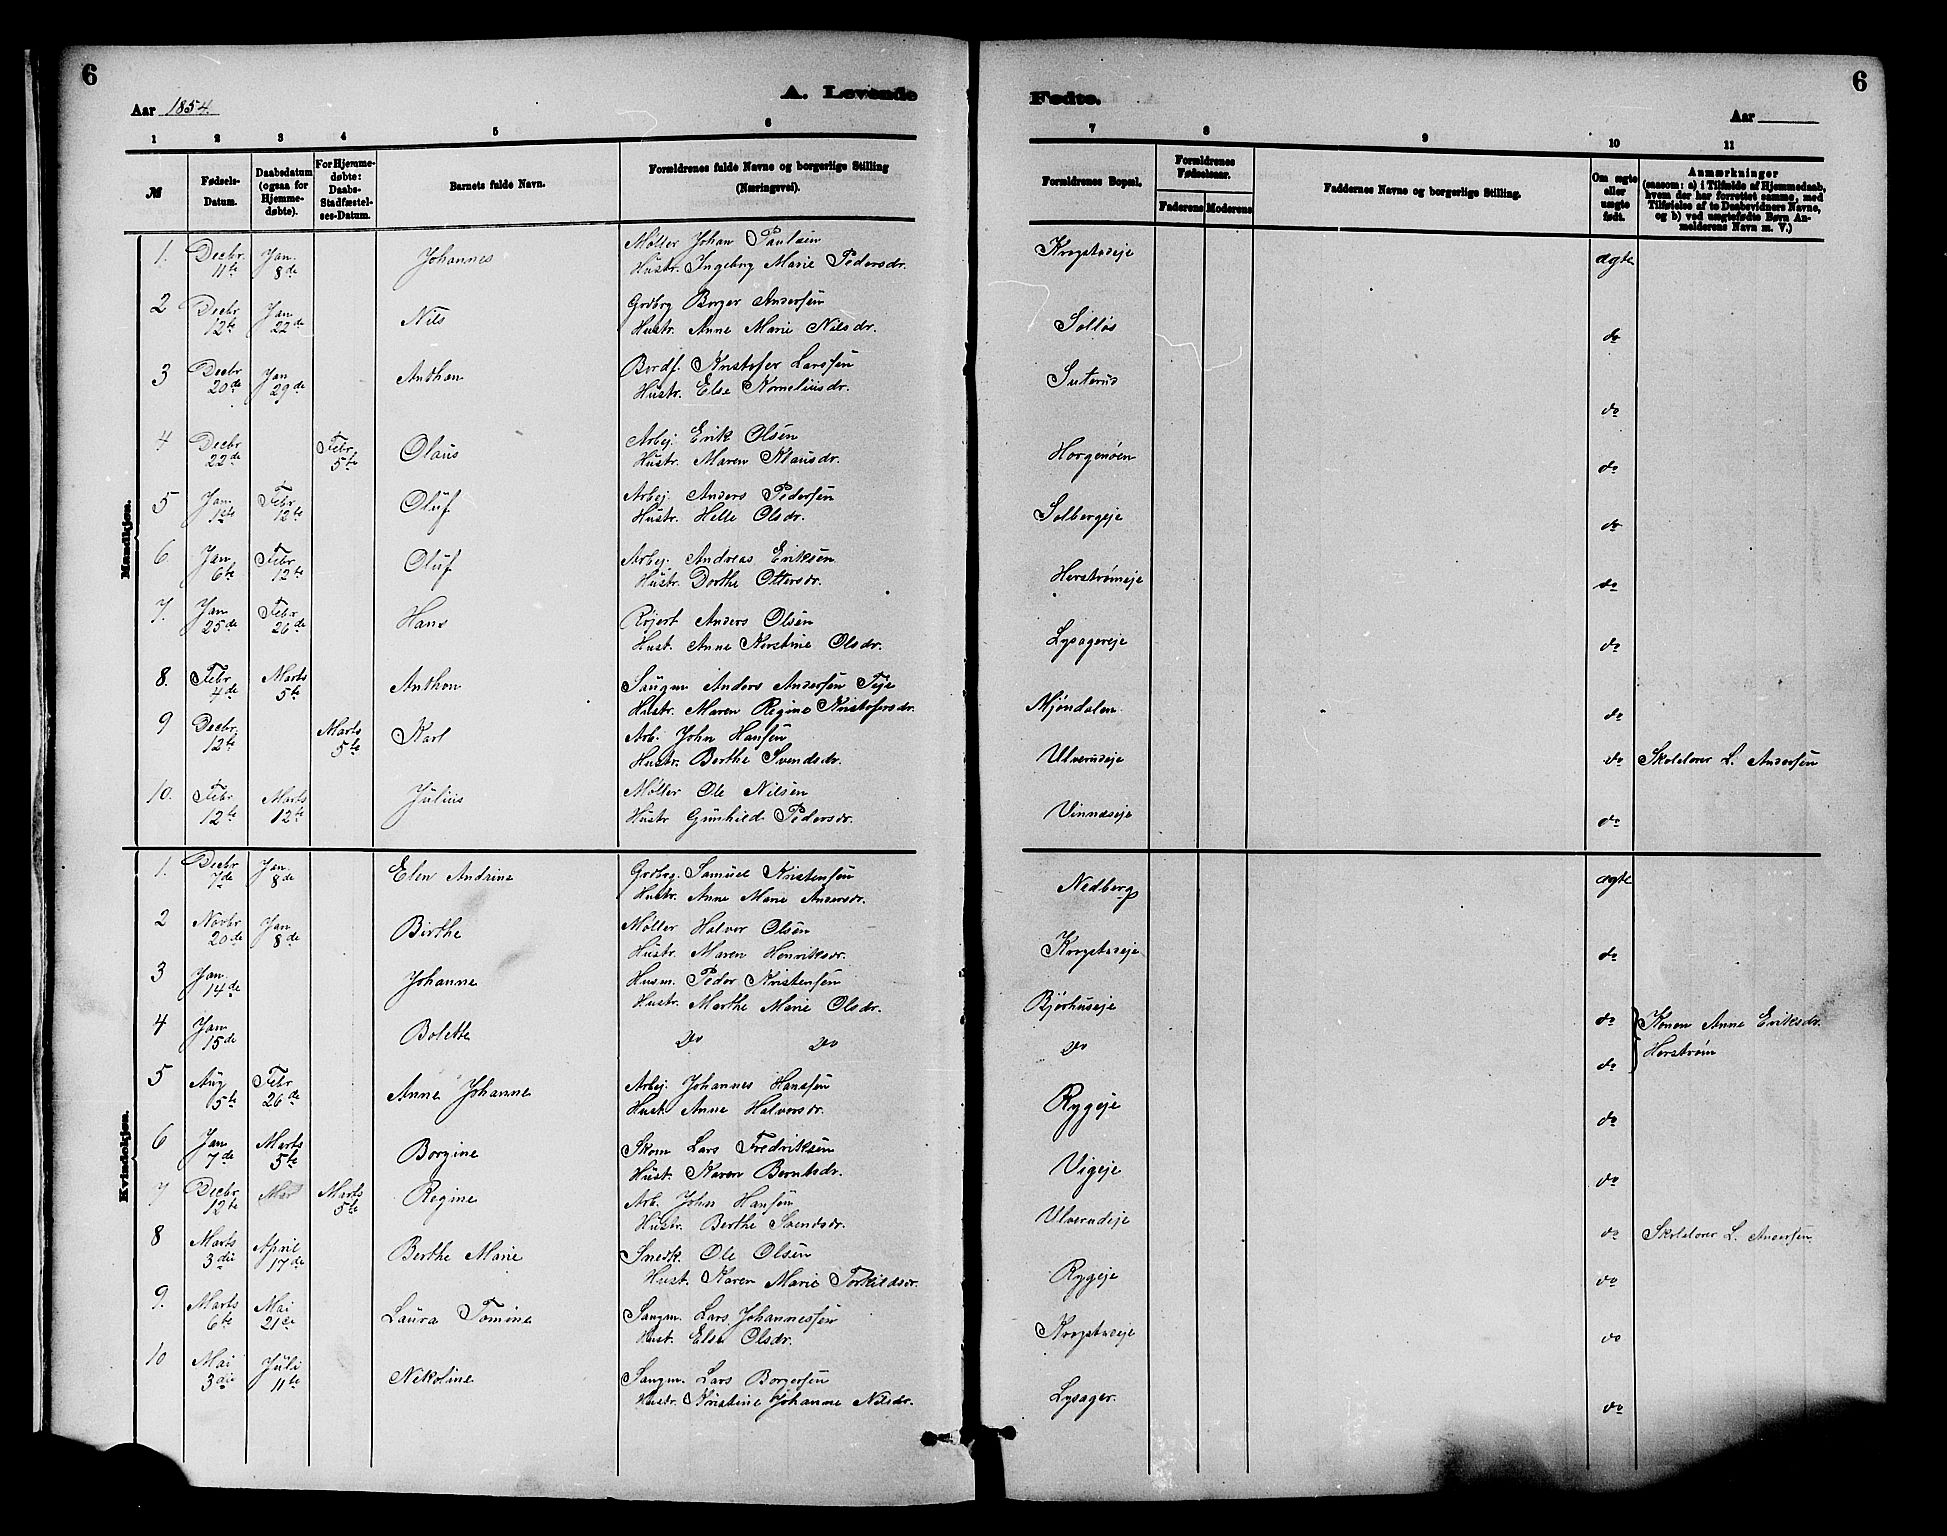 6
6
A. Levende Fødte.
Aar 1854.
Aar
1 2 3 4 5 6 7 8 9 10 11
№
Fødsels-Datum.
Daabsdatum (ogsaa for Hjemmedøbte).
For Hjemmedøbte: Daabs-Stadfæstelses-Datum.
Barnets fulde Navn.
Forældrenes fulde Navne og borgerlige Stilling (Næringsvei).
Forældrenes Bopæl.
Forældrenes Fødselsaar.
Faderens Moderens
Faddernes Navne og borgerlige Stilling.
Om ægte eller uægte født.
Anmærkninger (saasom: a) i Tilfælde af Hjemmedaab, hvem der har forrettet samme, med Tilføielse af to Daabsvidners Navne, og b) ved uægtefødte Børn Anmelderens Navn m. V.)
Mandkjøn.
1. Decbr. 11te Jan. 8de Johannes Møller Johan Paulsen Krogstadeje ægte
Hustr. Ingebrg Marie Pedersdr.
2 Decbr 12te Jan 22de Nils Grdbrg Borger Andersen Solløs do
Hustr. Anne Marie Nilsdr.
3 Decbr 20de Jan 29de Anthon Bordf. Kristofer Larssen Suterud do
Hustr. Else Korneliusdr.
4 Decbr 22de Febr 5te Olaus Arbej. Erik Olsen Horgenøen do
Hustr. Maren Klausdr.
5 Jan 1ste Febr 12te Oluf Arbej. Anders Pedersen Solbergeje do
Hustr. Helle Olsdr.
6 Jan 6te Febr 12te Oluf Arbej. Andreas Eriksen Herstrømeje do
Hustr. Dorthe Ottersdr.
7. Jan 25de Febr 26de Hans Rojert Anders Olsen Lysagereje do
Hust. Anne Kerstine Olsdr.
8. Febr 4de Marts 5te Anthon Saugm Anders Andersen Teje Mjøndalen do
Hustr. Maren Regine Kristofersdr.
9 Decbr. 12te Marts 5te Karl Arb. John Hansen Ulverudeje do Skolelærer L. Andersen
Hustr. Berthe Svendsdr.
10. Febr 12te Marts 12te Julius Møller Ole Nilsen Vinnæseje do
Hustr Gunhild Pedersdr.
Kvindekjøn.
1. Decbr 7de Jan 8de Elen Andrine Grdbrg. Samuel Kristensen Nedberg ægte
Hustr. Anne Marie Andersdr.
2 Novbr. 20de Jan 8de Birthe Møller Halvor Olsen Krogstadeje do
Hustr. Maren Henriksdr.
3 Jan. 14de Johanne Husm. Peder Kristensen Bjørhuseje do
Hustr. Marthe Marie Olsdr.
Konen Anne Eriksdr. Herstrøm
4 Jan. 15de Bolette do do do do
5 Aug 5te Febr 26de Anne Johanne Arbej. Johannes Hansen Rygeje do
Hust. Anne Halvorsdr.
6 Jan. 7de Marts 5te Borgine Skom Lars Fredriksen Vigeje do
Hust. Karen Berntsdr.
7 Decbr 12te Mar Marts 5te Regine Arb. John Hansen Ulverudeje do Skolelærer L. Andersen
Hustr. Berthe Svendsdr.
8 Marts 3die April 17de Berthe Marie Snedk. Ole Olsen Rygeje do
Hust. Karen Marie Torkildsdr
9. Marts 6te Mai 21de Laura Tomine Saugm. Lars Johannessen Krogstadeje do
Hust. Else Olsdr.
10 Mai 3die Juli 11te Nikoline Saugm. Lars Borgersen Lysager. do
Hustr. Kristine Johanne Nilsdr.